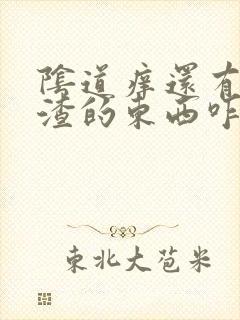 陰道痒還有
渣的東西咋
東北大苞米